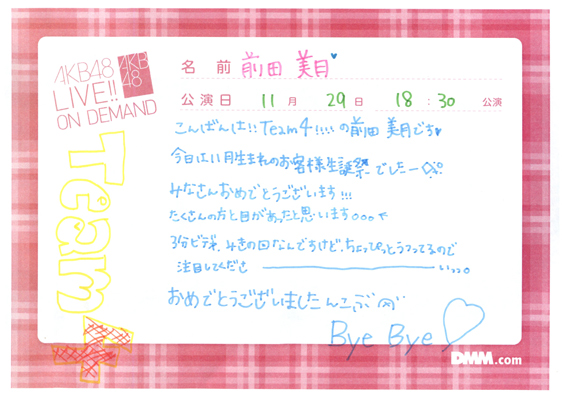 AKB48
LIVE!!
ON DEMAND
AKB
48
名 前 前田 美月
公演日 11月 29日 18:30 公演
Team4
こんばんは!! Team4!!!! の前田 美月です
今日は11月生まれのお客様生誕祭でしたー
みなさんおめでとうございます!!!
たくさんの方と目があったと思います
3分ビデオ、みきの回なんですけど、ちょっぴっとうつってるので
注目してくださ――――いっ
おめでとうございました
Bye Bye
DMM.com